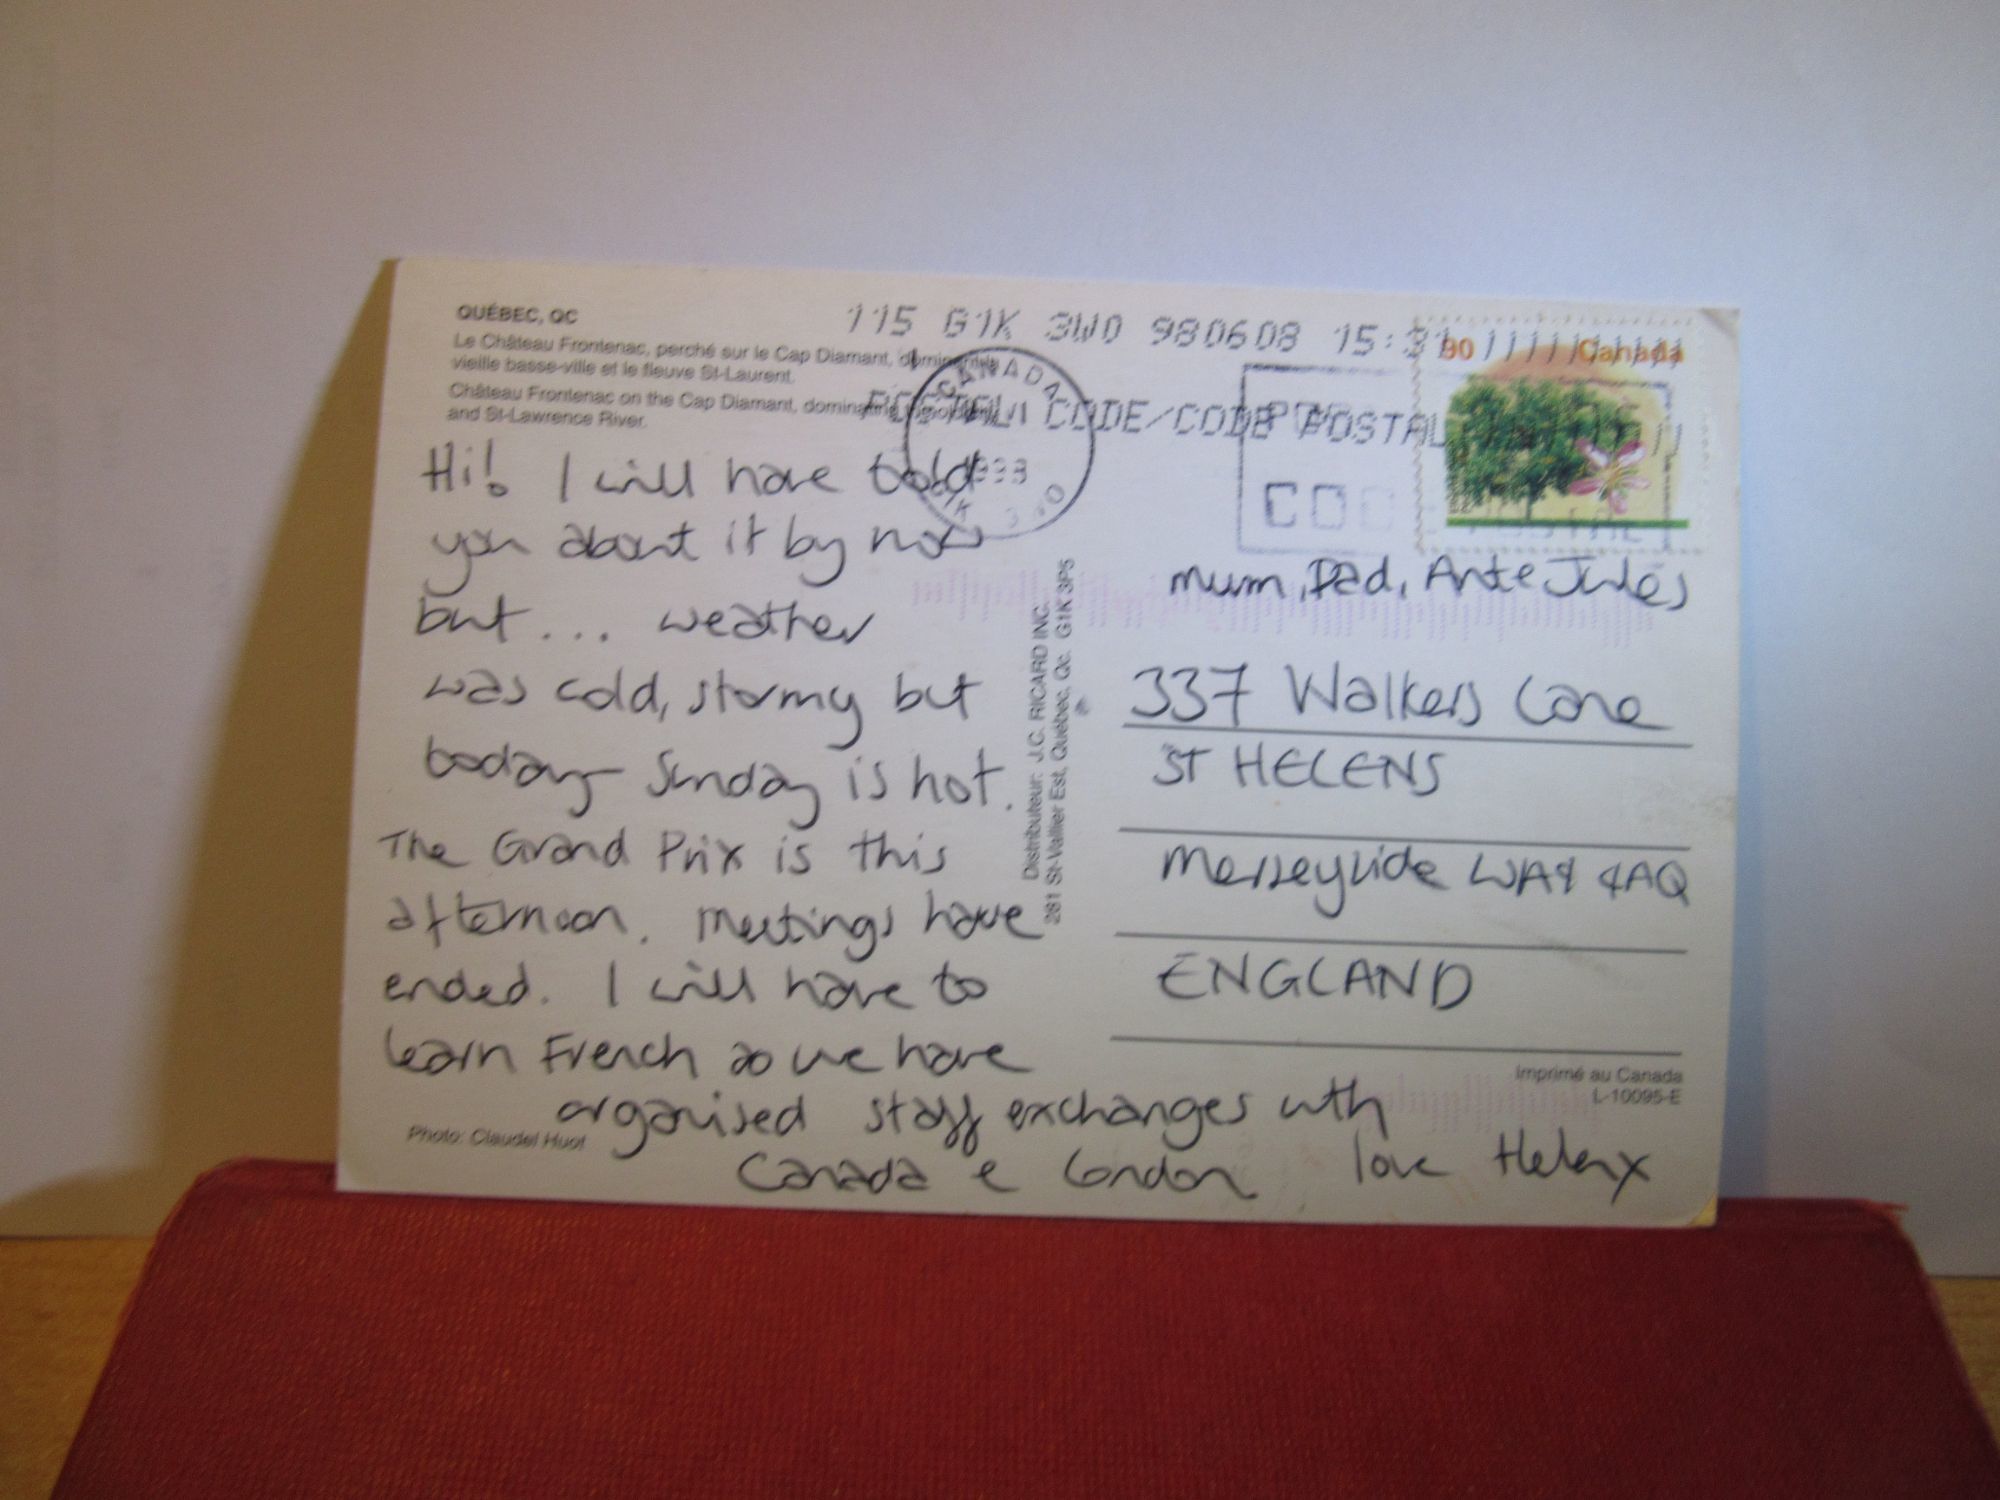 QUÉBEC, QC
Le Château Frontenac, perché sur le Cap Diamant,
vieille basse-ville et le fleuve St-Laurent.
Château Frontenac on the Cap Diamant, dominating
and St-Lawrence River.
115 G1K 3W0 980608 15:31
POSTAL CODE/CODE POSTAL
CANADA
G1K 3W0
90 Canada
Hi! I will have told
you about it by now
but... weather
was cold, stormy but
today - Sunday is hot.
The Grand Prix is this
afternoon. Meetings have
ended. I will have to
learn French as we have
organised staff exchanges with
Canada & London love Helenx
Photo: Claudel Huot
Distributeur: J.C. RICARD INC.
281 St-Vallier Est, Québec, Qc. G1K 3P5
mum, Dad, Ante Jules
337 Walkers Lane
ST HELENS
Merseyside WA9 4AQ
ENGLAND
Imprimé au Canada
L-10095-E